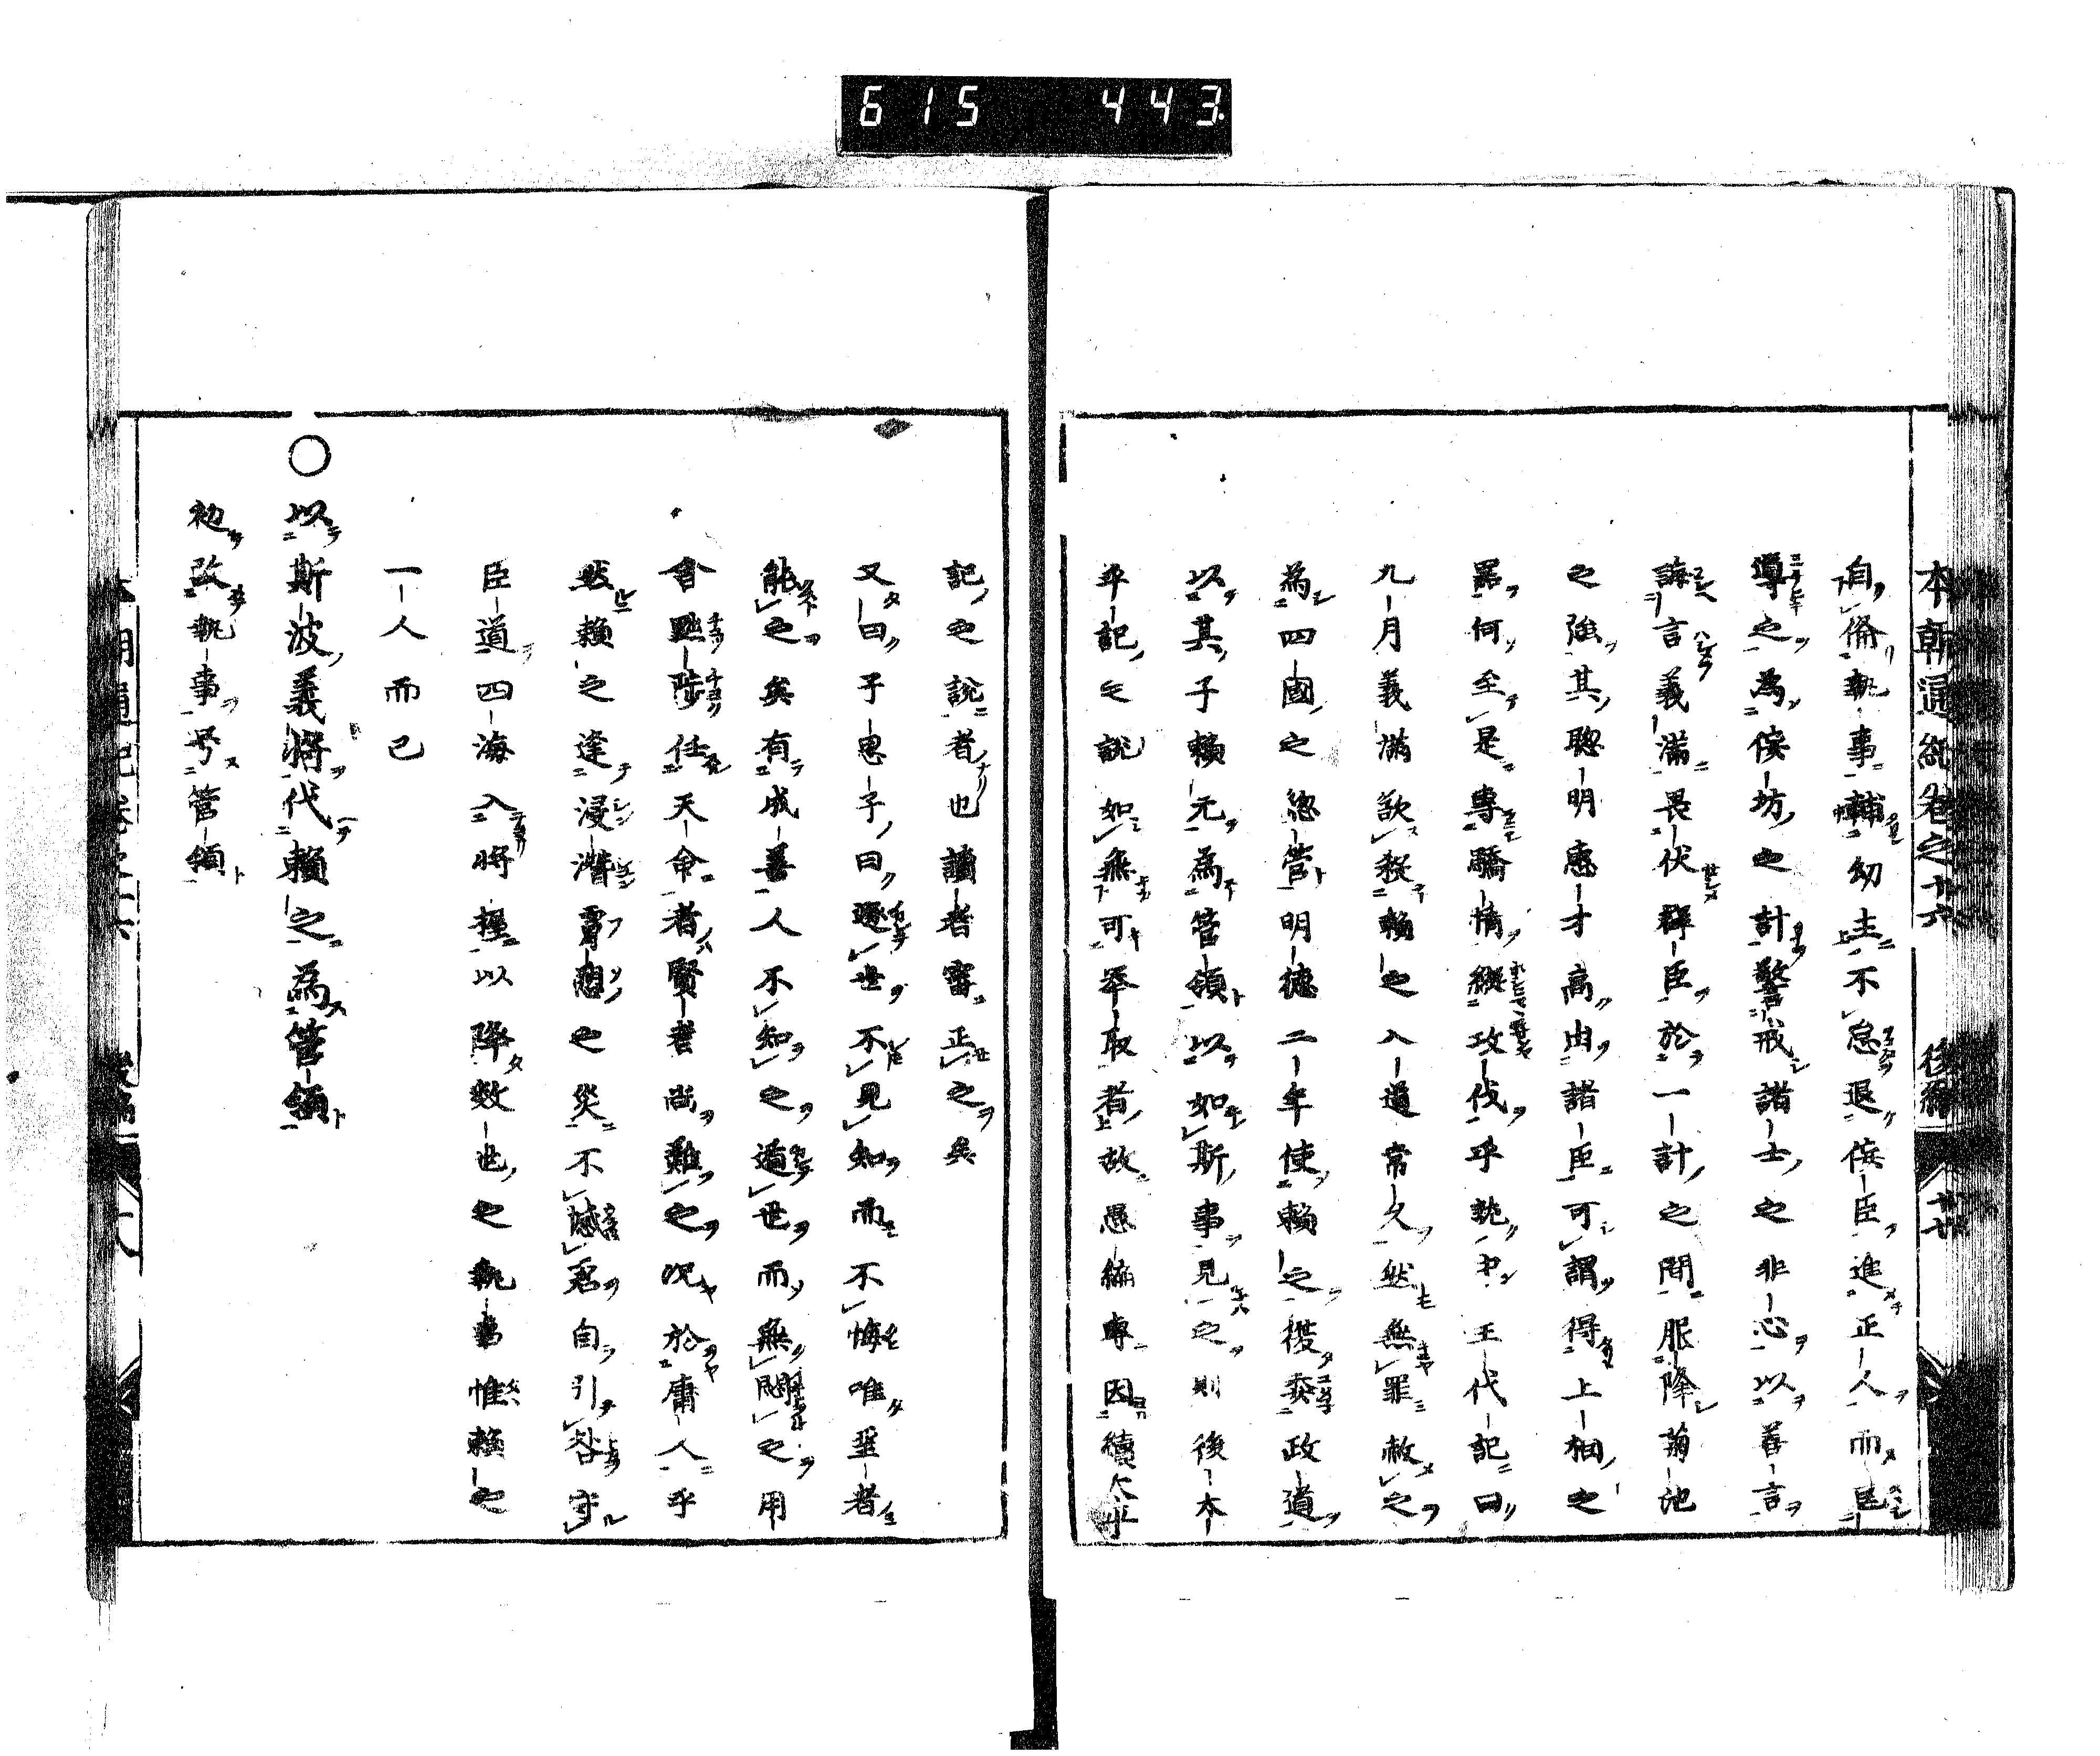 615 443
本朝通紀卷之十六 後編 十七
自備執事輔幼主不怠退侫臣進正人而
導之為侫坊之計警戒諸士之非心以善言
誨言義滿畏伏群臣於一計之間服降菊池
之強其聰明惠才高由諸臣可謂得上相之
器何至是專驕情縱攻伐乎王代記曰
九月義滿欲殺賴之入道常久然無罪赦之
為四國之總管明德二年使賴之復委政道
以其子賴元為管領以如斯事見之則後太
平記之說如無可舉取者故愚編專因續太平
記之說者也讀者審正之矣
又曰子思子曰遯世不見知而不悔唯聖者
能之矣有成善人不知之遁世而無悶之用
舍黜陟任天命者賢者尚難之況於庸人乎
然賴之逢浸潛膚愬之災不憾君自引咎守
臣道四海入將握以降數世之執事惟賴之
一人而已
○以斯波義將代賴之為管領
初改執事号管領